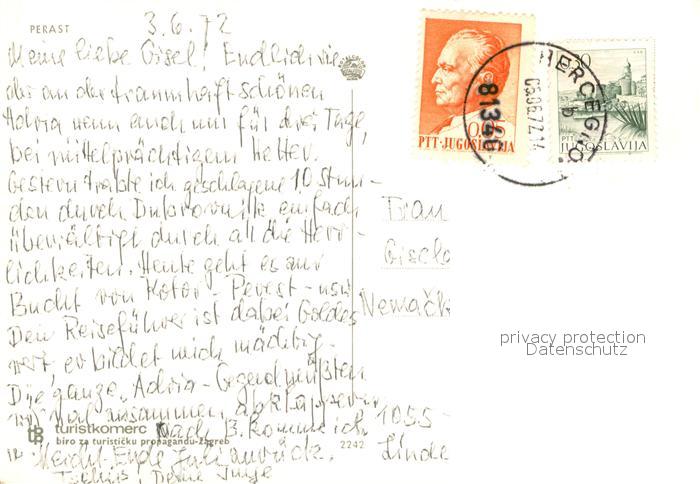 PERAST
3.6.72
Meine liebe Gisel! Endlich wie
der an der traumhaft schönen
Adria wenn auch nur für drei Tage,
bei mittelprächtigem Wetter.
Gestern trabte ich geschlagene 10 Stun-
den durch Dubrovnik einfach
überwältigt durch all die Herr-
lichkeiten. Heute geht es zur
Bucht von Kotor - Perest - usw
Dein Reiseführer ist dabei Goldes
wert, er bildet mich mächtig.
Die ganze Adria-Gegend müßten
wir mal zusammen abklappern
Nach B. komme ich
Ende Juli zurück.
Tschüs, Deine Inge
Frau
Gisela
Nemačk
1055-
Linde
turistkomerc
biro za turističku propagandu-Zagreb
2242
PTT-JUGOSLAVIJA
PTT
JUGOSLAVIJA
HERCEGNO
81340
privacy protection
Datenschutz